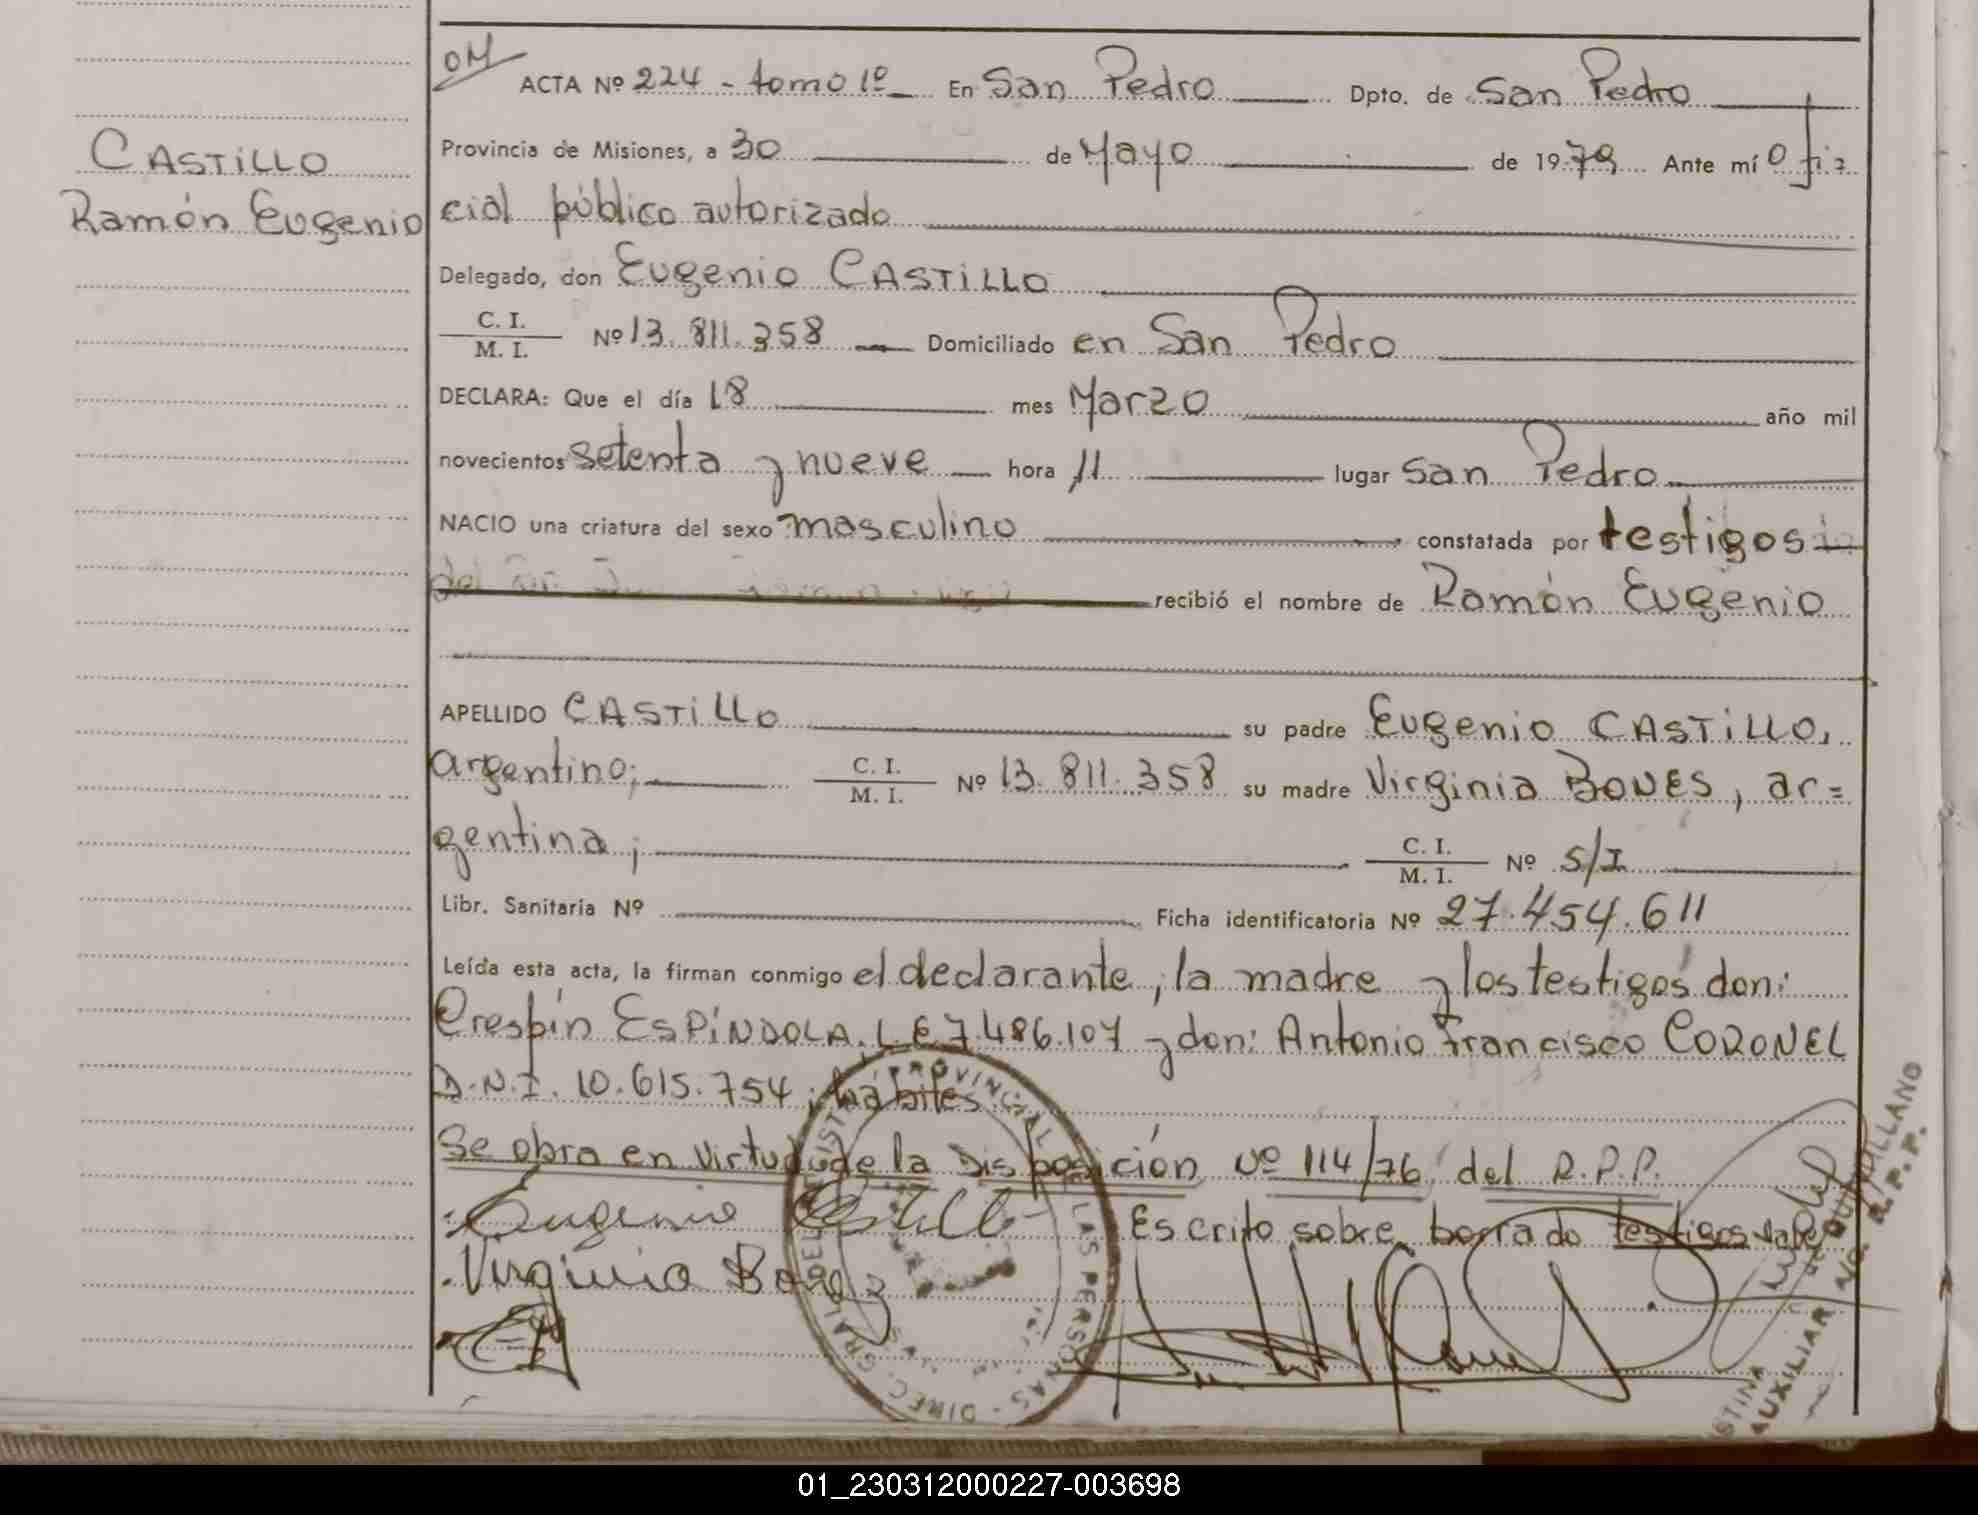 OM
ACTA Nº 224 - tomo 1º En San Pedro Dpto. de San Pedro
CASTILLO
Provincia de Misiones, a 30 de Mayo de 1979 Ante mí Ofi=
Ramón Eugenio
cial público autorizado
Delegado, don Eugenio CASTILLO
C. I.
M. I. Nº 13.811.358 Domiciliado en San Pedro
DECLARA: Que el día 18 mes Marzo año mil
novecientos setenta y nueve hora 11 lugar San Pedro
NACIO una criatura del sexo masculino constatada por testigos
recibió el nombre de Ramón Eugenio
APELLIDO CASTILLO su padre Eugenio CASTILLO,
argentino; C. I. M. I. Nº 13.811.358 su madre Virginia BOVES, ar=
gentina; C. I. M. I. Nº S/I
Libr. Sanitaria Nº Ficha identificatoria Nº 27.454.611
Leída esta acta, la firman conmigo el declarante, la madre y los testigos don:
Crespín ESPÍNDOLA. L E 7.486.107 y don: Antonio Francisco CORONEL
D.N.I. 10.615.754; hábiles.
Se obra en virtud de la Disposición Nº 114/76 del R.P.P.
Eugenio Castillo Escrito sobre borrado testigos vale
Virginia
PROVINCIAL DE LAS PERSONAS - DIREC. GRAL. DEL REGISTRO
AUXILIAR
R. P. P.
01_230312000227-003698